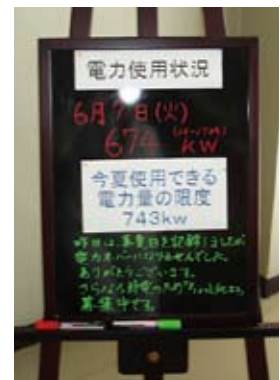 電力使用状況
6月7日(火)
674 kW
今夏使用できる
電力量の限度
743kw
昨日は真夏日を記録しましたが
電力オーバーになりませんでした。
ありがとうございます。
さらなる節電のための
募集中です。